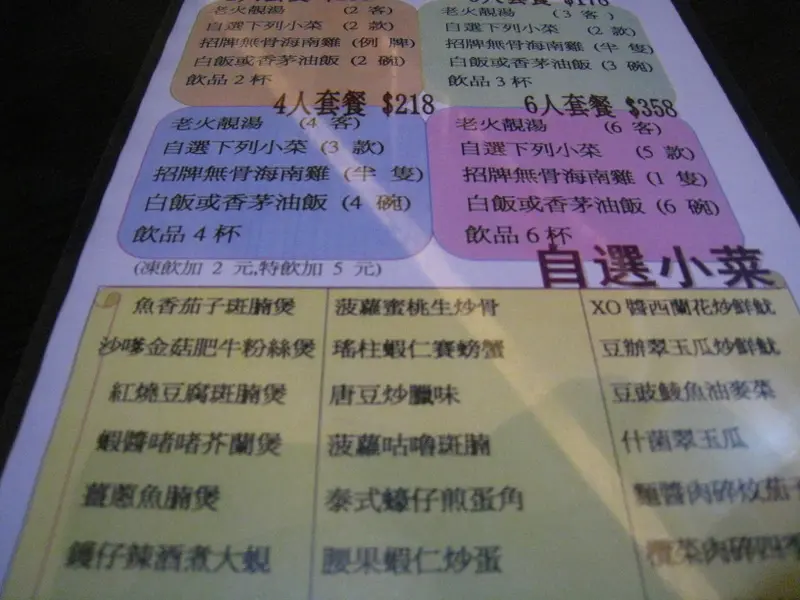 老火靚湯 (2 客)
自選下列小菜 (2 款)
招牌無骨海南雞 (例 牌)
白飯或香茅油飯 (2 碗)
飲品 2 杯
$176
老火靚湯 (3 客)
自選下列小菜 (2 款)
招牌無骨海南雞 (半 隻)
白飯或香茅油飯 (3 碗)
飲品 3 杯
4人套餐 $218
老火靚湯 (4 客)
自選下列小菜 (3 款)
招牌無骨海南雞 (半 隻)
白飯或香茅油飯 (4 碗)
飲品 4 杯
6人套餐 $358
老火靚湯 (6 客)
自選下列小菜 (5 款)
招牌無骨海南雞 (1 隻)
白飯或香茅油飯 (6 碗)
飲品 6 杯
(凍飲加 2 元,特飲加 5 元)
自選小菜
魚香茄子斑腩煲
沙嗲金菇肥牛粉絲煲
紅燒豆腐斑腩煲
蝦醬啫啫芥蘭煲
薑蔥魚腩煲
鑊仔辣酒煮大蜆
菠蘿蜜桃生炒骨
瑤柱蝦仁賽螃蟹
唐豆炒臘味
菠蘿咕嚕斑腩
泰式蠔仔煎蛋角
腰果蝦仁炒蛋
XO 醬西蘭花炒鮮魷
豆辦翠玉瓜炒鮮魷
豆豉鯪魚油麥菜
什菌翠玉瓜
麵醬肉碎炆茄子
欖菜肉碎四季